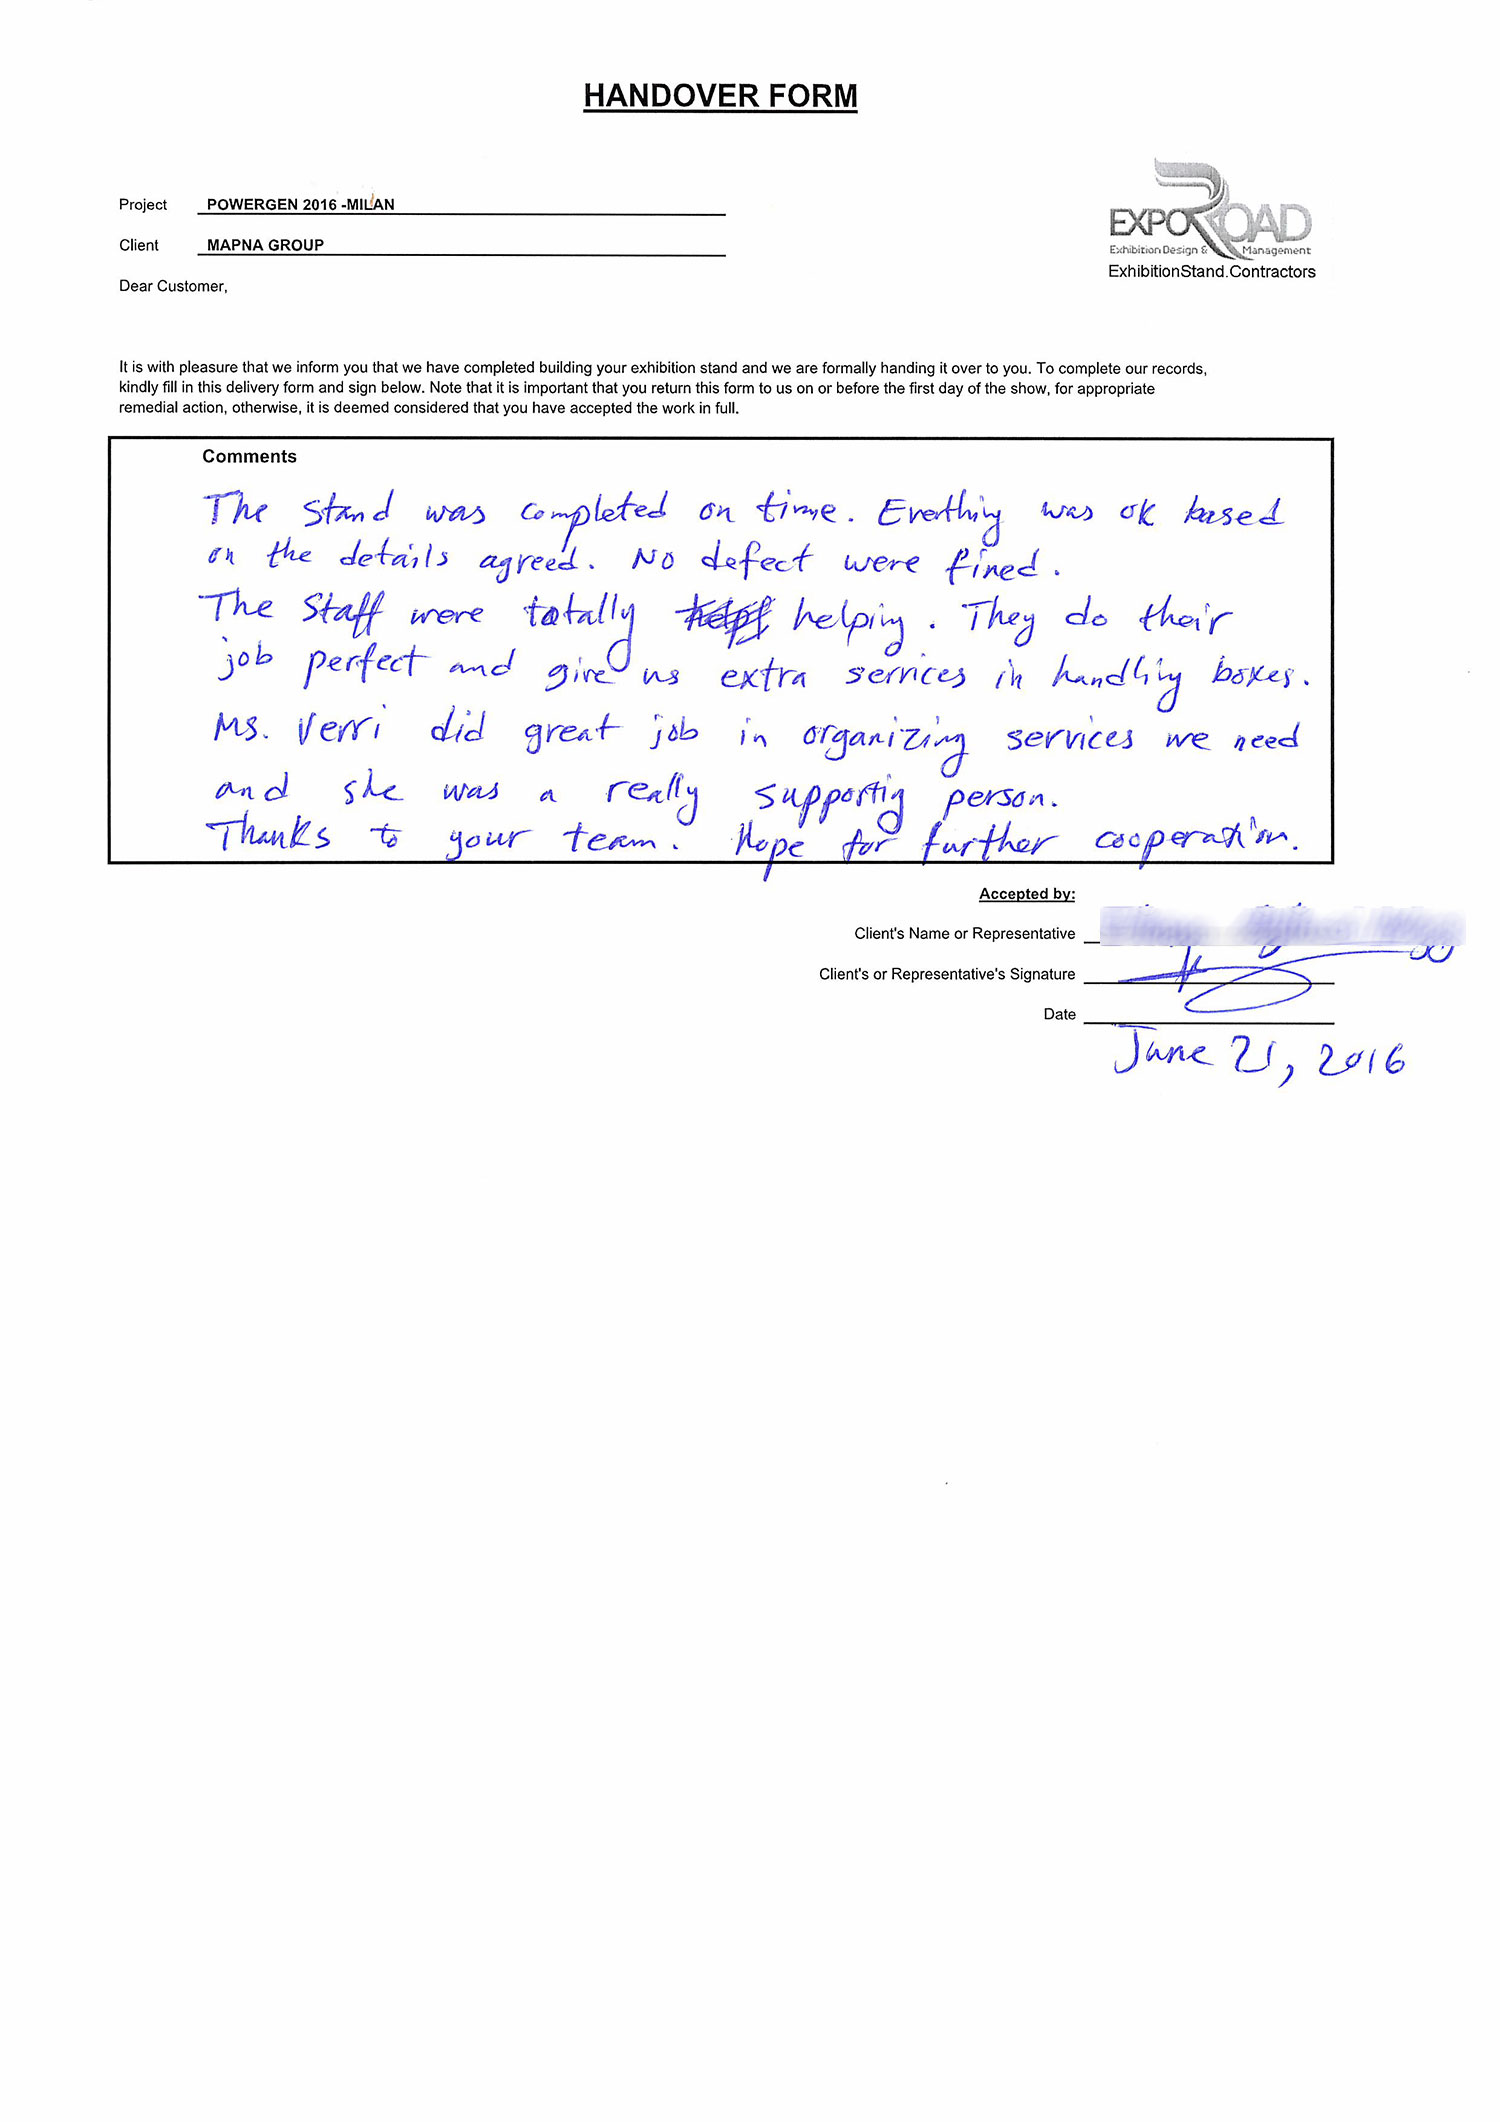 HANDOVER FORM
Project POWERGEN 2016 -MILAN
Client MAPNA GROUP
EXPOROAD
Exhibition Design & Management
ExhibitionStand.Contractors
Dear Customer,
It is with pleasure that we inform you that we have completed building your exhibition stand and we are formally handing it over to you. To complete our records,
kindly fill in this delivery form and sign below. Note that it is important that you return this form to us on or before the first day of the show, for appropriate
remedial action, otherwise, it is deemed considered that you have accepted the work in full.
Comments
The stand was completed on time. Everthing was ok based
on the details agreed. No defect were fined.
The Staff were totally helping. They do their
job perfect and give us extra services in handling boxes.
Ms. Verri did great job in organizing services we need
and she was a really supportig person.
Thanks to your team. Hope for further cooperation.
Accepted by:
Client's Name or Representative
Client's or Representative's Signature
Date
June 21, 2016